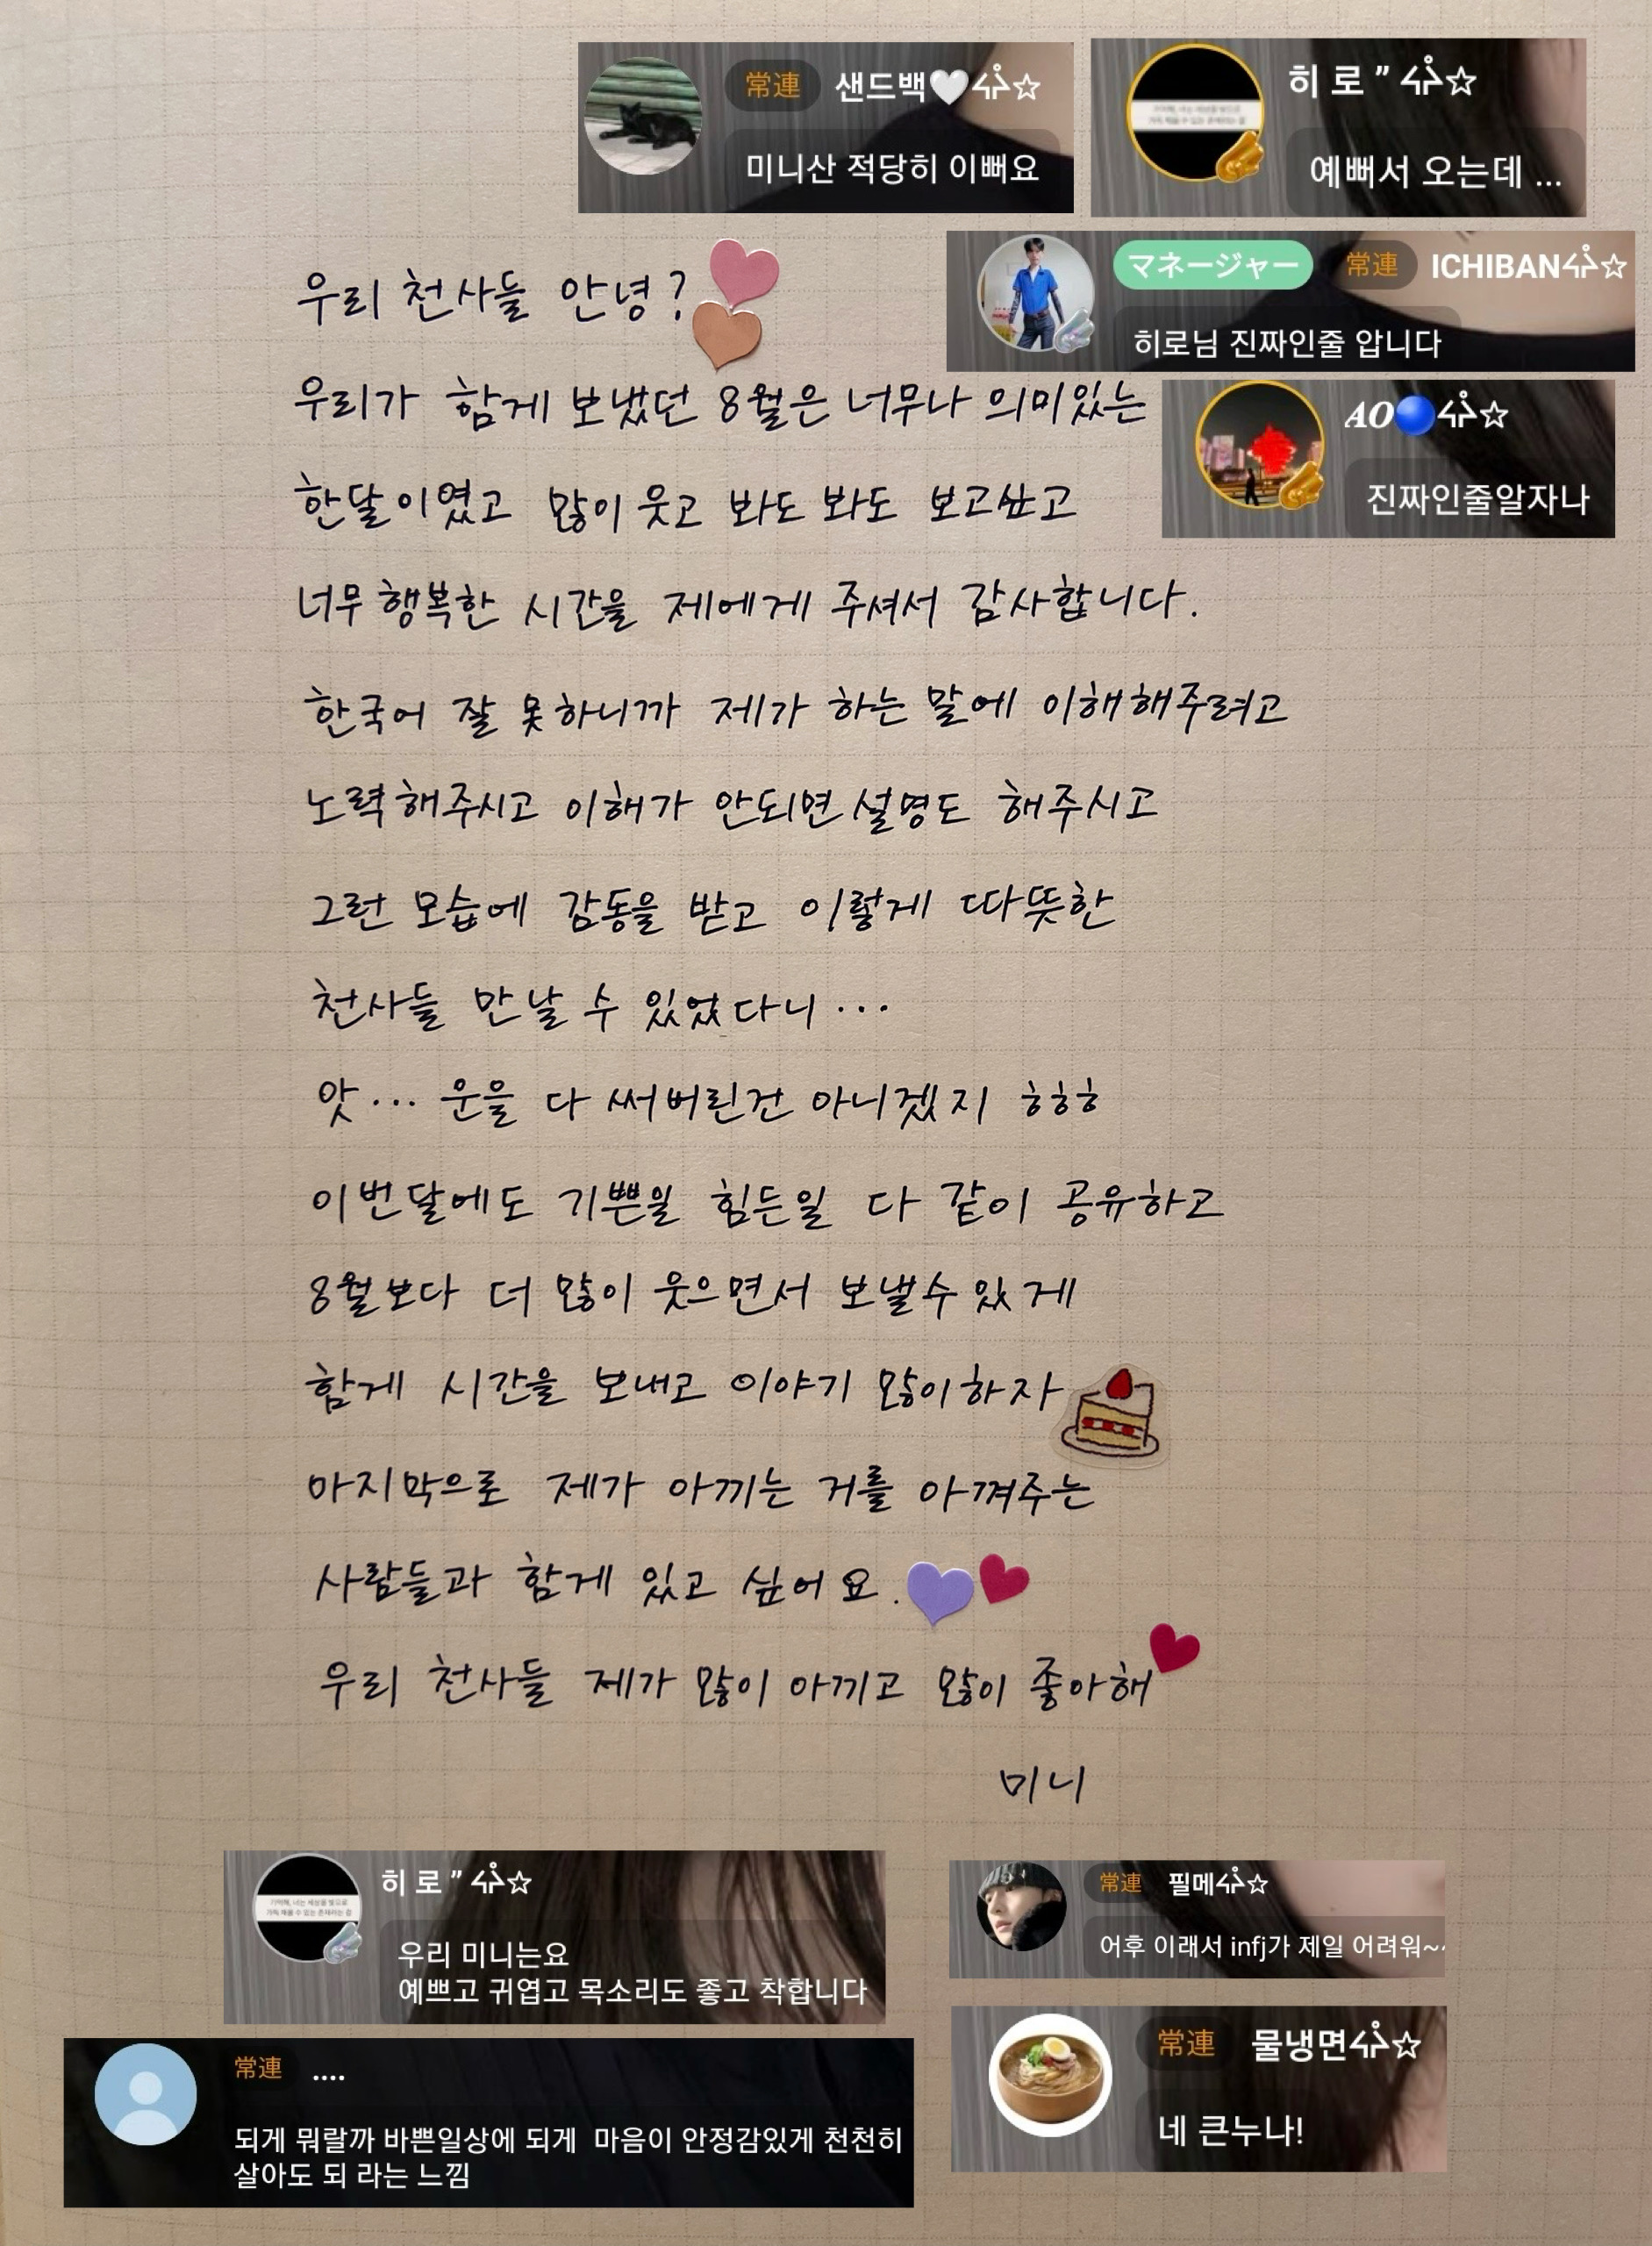 常連 샌드백🤍4ᢀ☆
미니산 적당히 이뻐요
히 로 ”
예뻐서 오는데 ...
マネージャー 常連 ICHIBAN
히로님 진짜인줄 압니다
AO🔵
진짜인줄알자나
우리 천사들 안녕?
우리가 함께 보냈던 8월은 너무나 의미있는
한달이였고 많이 웃고 봐도 봐도 보고싶고
너무 행복한 시간을 제에게 주셔서 감사합니다.
한국어 잘 못하니까 제가 하는 말에 이해해주려고
노력해주시고 이해가 안되면 설명도 해주시고
그런 모습에 감동을 받고 이렇게 따뜻한
천사들 만날 수 있었다니...
앗... 운을 다 써버린건 아니겠지 ㅎㅎㅎ
이번달에도 기쁜일 힘든일 다 같이 공유하고
8월보다 더 많이 웃으면서 보낼수 있게
함께 시간을 보내고 이야기 많이하자
마지막으로 제가 아끼는 거를 아껴주는
사람들과 함께 있고 싶어요.
우리 천사들 제가 많이 아끼고 많이 좋아해
미니
히 로 ”
우리 미니는요
예쁘고 귀엽고 목소리도 좋고 착합니다
常連 필메
어후 이래서 infj가 제일 어려워~
常連 ....
되게 뭐랄까 바쁜일상에 되게 마음이 안정감있게 천천히
살아도 되 라는 느낌
常連 물냉면
네 큰누나!